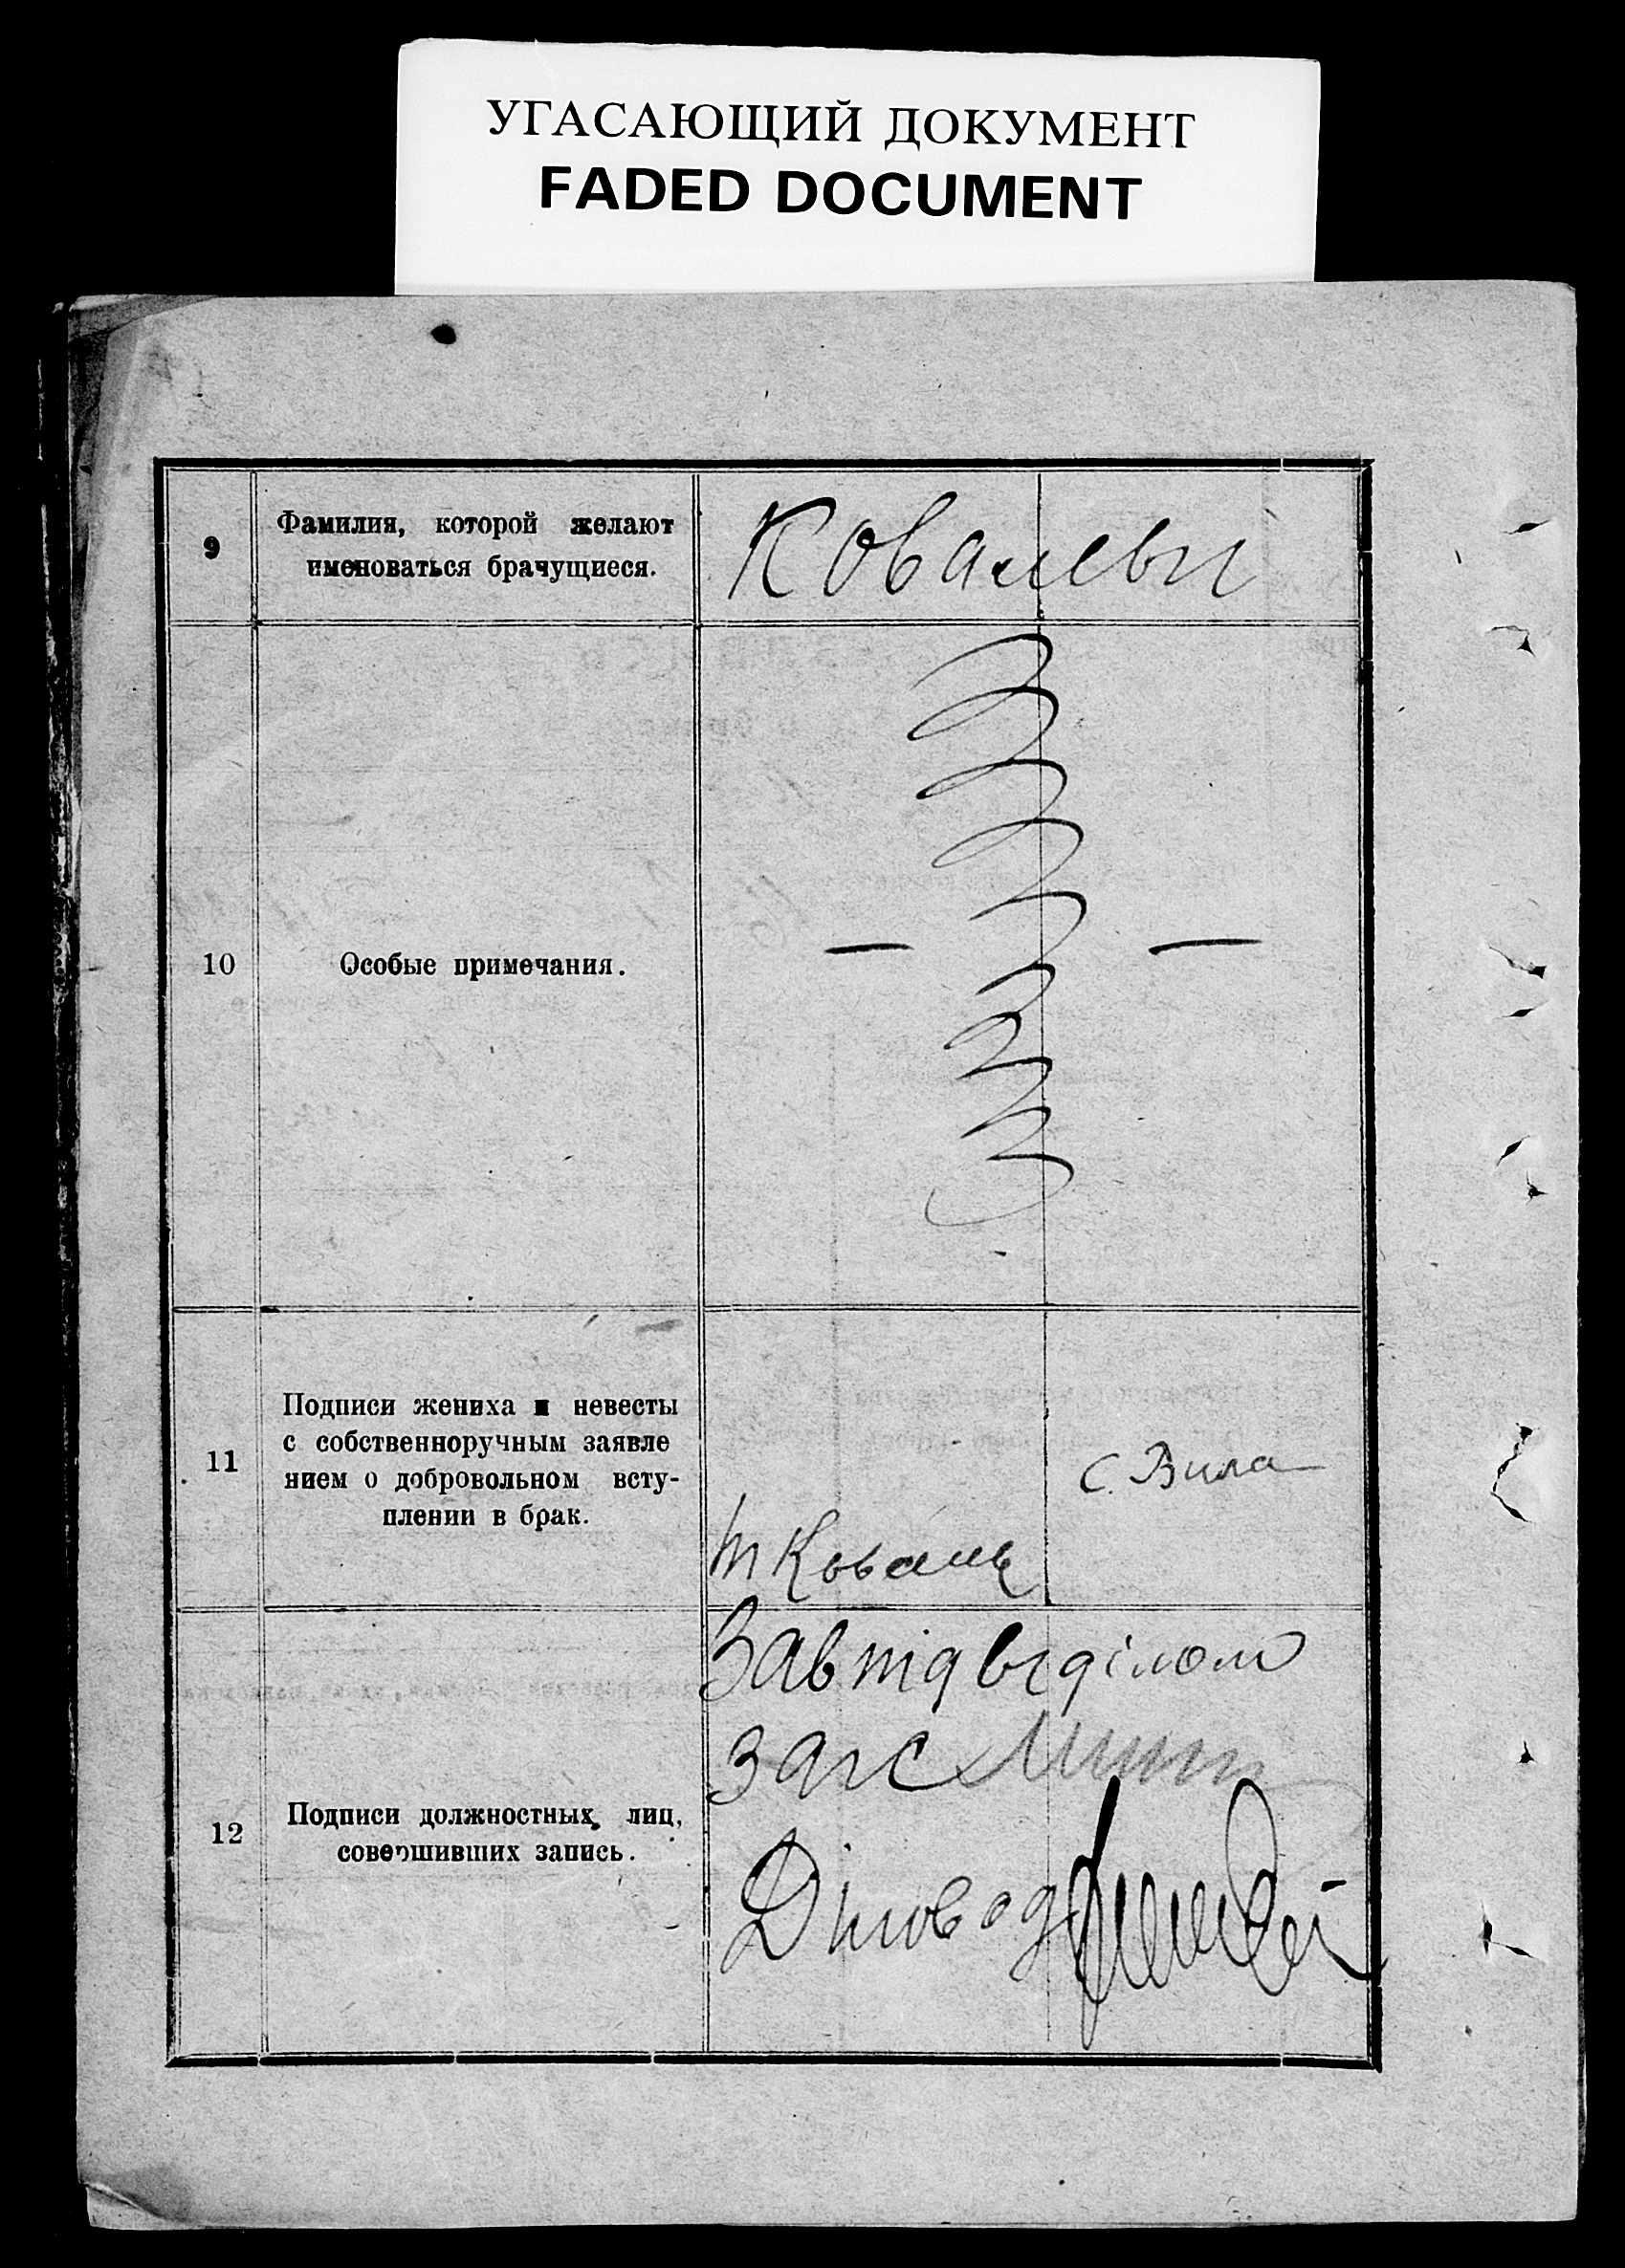 УГАСАЮЩИЙ ДОКУМЕНТ
FADED DOCUMENT
9
Фамилия, которой желают
именоваться брачущиеся.
Ковалевы
10
Особые примечания.
— —
11
Подписи жениха и невесты
с собственноручным заявле
нием о добровольном всту-
плении в брак.
С. Вила
Коваль
12
Подписи должностных лиц,
совершивших запись.
Завпідвідділом
загс
Діловод